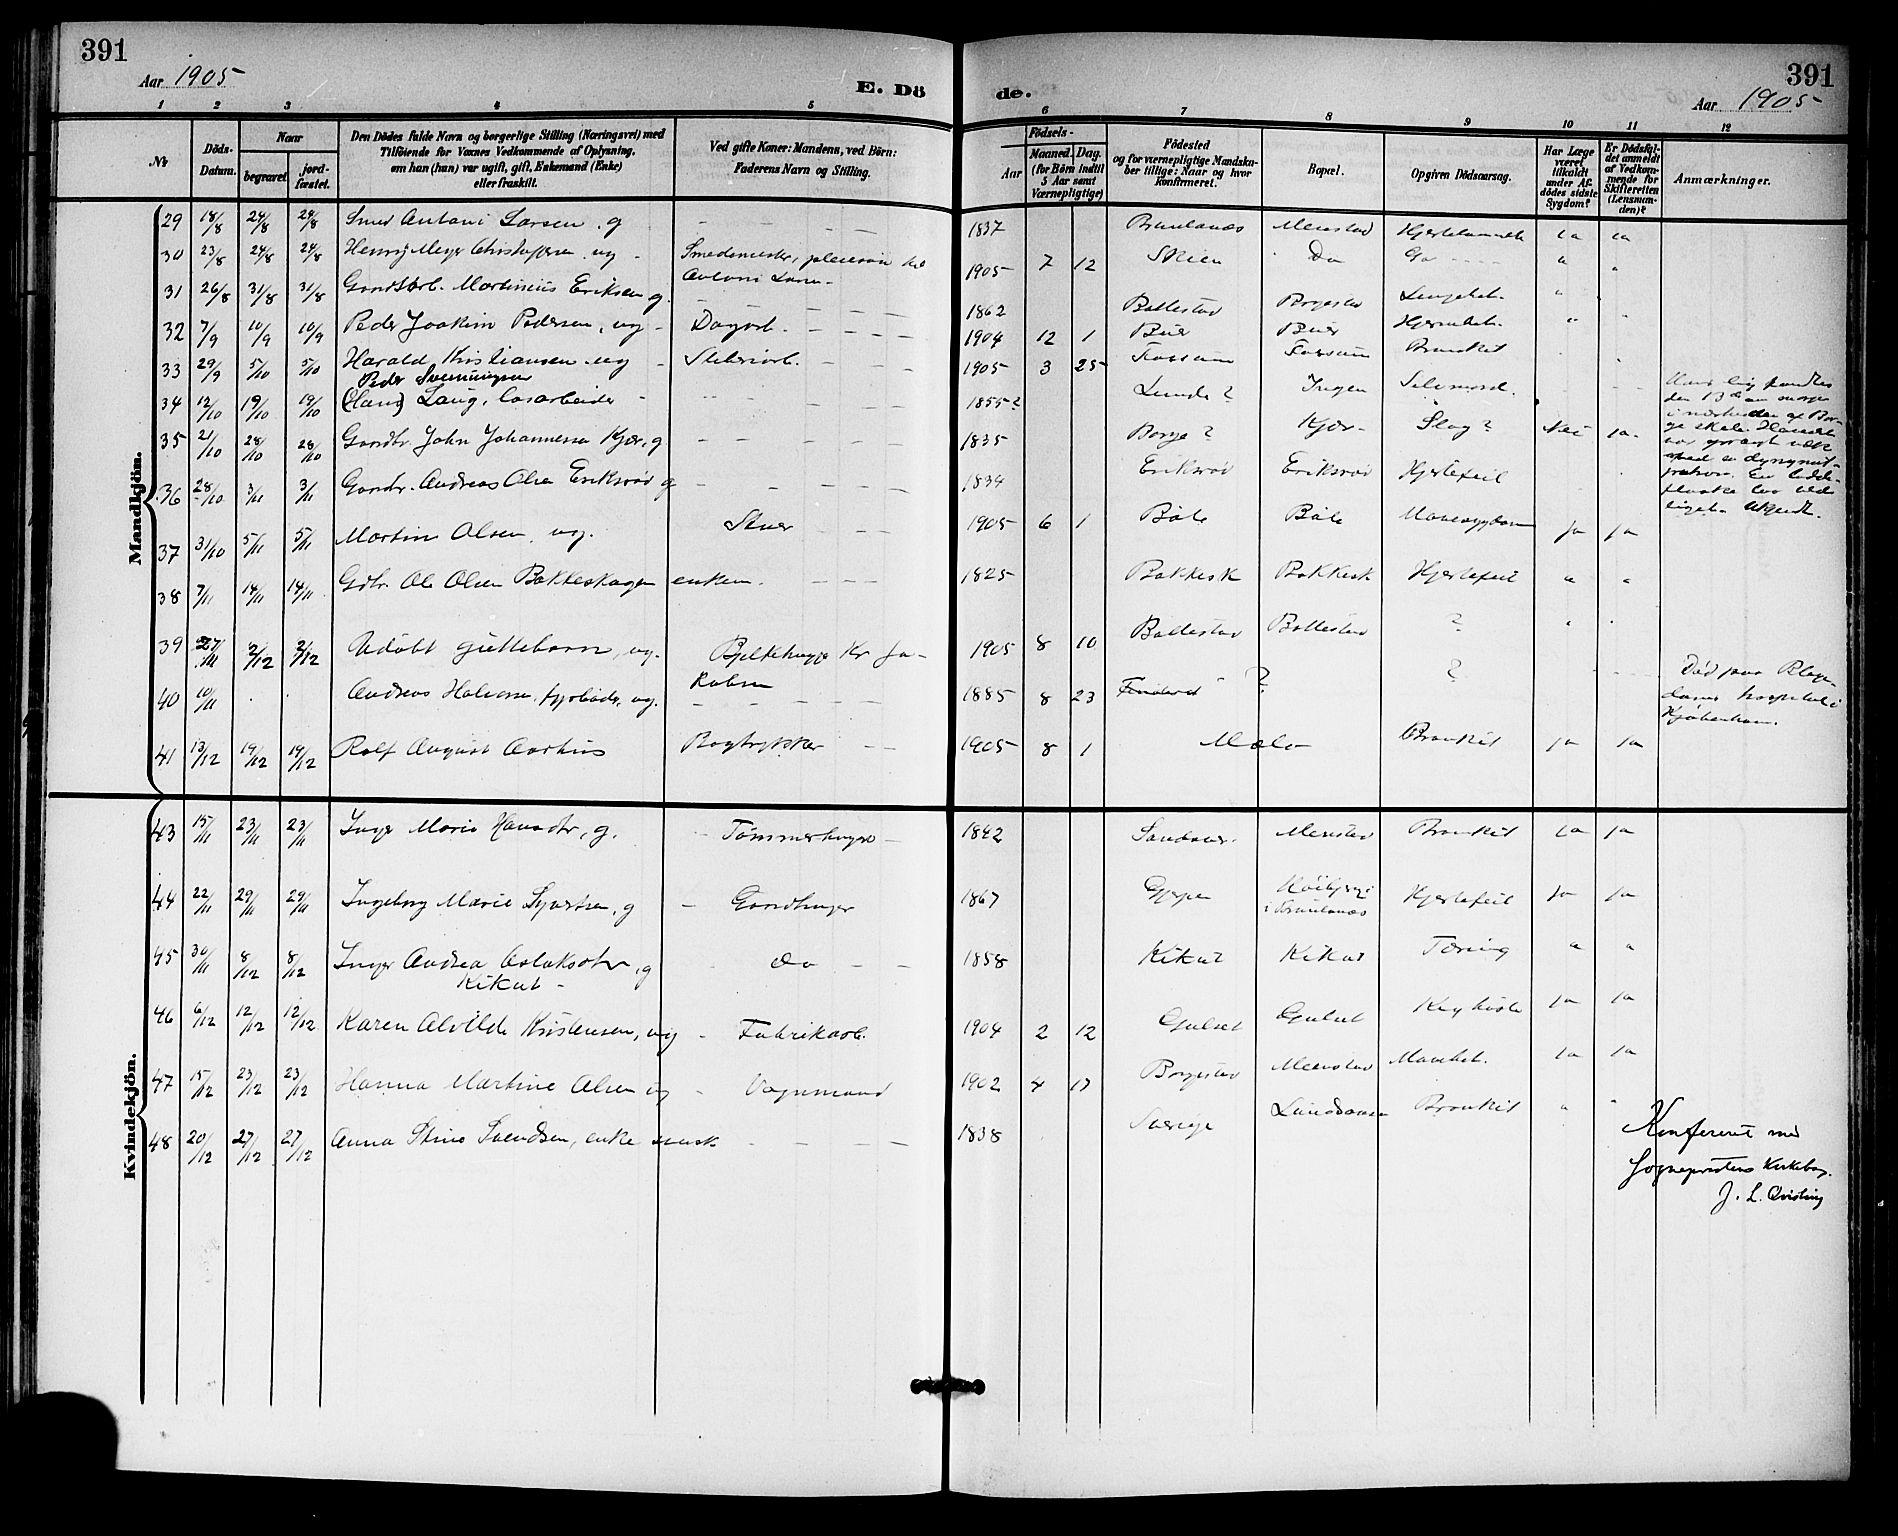 391
Aar 1905
E. Dö
de.
391
Aar 1905
1 2 3 4 5 6 7 8 9 10 11 12
№
Döds-
Datum.
Naar
begravet.
jord-
fæstet.
Den Dödes fulde Navn og borgerlige Stilling (Næringsvei) med
Tilföiende for Voxnes Vedkommende af Oplysning,
om han (hun) var ugift, gift, Enkemand (Enke)
eller fraskilt.
Ved gifte Koner: Mandens, ved Börn:
Faderens Navn og Stilling.
Födsels-
Aar
Maaned. Dag.
(for Börn indtil
5 Aar samt
Værnepligtige)
Födested
og for værnepligtige Mandska-
ber tillige: Naar og hvor
Konfirmeret.
Bopæl.
Opgiven Dödsaarsag.
Har Læge
været
tilkaldt
under Af-
dödes sidste
Sygdom?
Er Dödsfal-
det anmeldt
af Vedkom-
mende for
Skifteretten
(Lensman-
den)?
Anmærkninger.
Mandkjön.
29 18/8 24/8 24/8 Smed Antoni Larsen, g — — — — 1837 Brunlanæs Menstad ja ja
30 23/8 24/8 24/8 Henry Meyer Christoffersen ug - Smedemester, pleiesön til 1905 7 12 Skien Do Do " "
Antoni Larsen
31 26/8 31/8 31/8 Gaardbrb. Martinius Eriksen g. — — — — 1862 Bollestad Borgestad Lungebet. " "
32 7/9 10/9 10/9 Peder Joakim Pedersen, ug - Dagarb. — — — 1904 12 1 Buer Buer Hjernebet. " "
33 29/9 5/10 5/10 Harald Kristiansen ug - Sliberiarb. — — — 1905 3 25 Fossum Fossum Bronkit
Peder Svenningsen
34 12/10 19/10 19/10 (Hans) Laug, løsarbeider - — — — 1855? Lunde? Ingen Selvmord.
Hans lig fandtes
den 13de om morge
i nærheden af Bor-
ge skole. Hovedet
var sprængt væk
med en dynamit-
patron. En
flaske laa ved
liget.
35 21/10 28/10 28/10 Gaardbr. John Johannessen Kjær, g — — — — 1835 Borge? Kjær Slag? Nei ja
36 28/10 3/11 3/11 Gaardbr. Andreas Olsen Eriksrød g — — — — 1834 Eriksrød Eriksrød Hjertefeil
37 31/10 5/11 5/11 Martin Olsen, ug. Stuer — — — 1905 6 1 Böle Böle Mavesygdom ja ja
38 7/11 14/11 14/11 Gdbr. Ole Olsen Bakkeskogen enkem. — — — 1825 Bakkesk Bakkesk Hjertefeil " "
39 27/11 2/12 2/12 Udöbt guttebarn, ug. Bjelkehugger Kr. Ja- 1905 8 10 Bollestad Bollestad ? " "
kobsen
40 10/11 Andreas Halvorsen, fyrböder, ug. — — — — 1885 8 23 ? ? Död paa Bleg-
dams hospitalet i
Kjöbenhavn.
41 13/12 19/12 19/12 Rolf August Aarhus Bogtrykker — — 1905 8 1 Mæla Bronkit ja ja
Kvindekjön.
43 15/11 23/11 23/11 Inger Marie Hansdtr, g. - Tömmerhugger - 1842 Menstad Bronkit ja ja
44 22/11 29/11 29/11 Ingeborg Marie Syvertsen, g - Gaardbruger 1867 Gjerpen Höibjerg Hjertefeil ja ja
i Brunlanæs
45 30/11 8/12 8/12 Inger Andrea Aslaksdtr, g - do — — 1858 Kikut Kikut Tæring " "
Kikut -
46 6/12 12/12 12/12 Karen Alvilde Kristensen, ug - Fabrikarb. 1904 2 12 Gulset Gulset Kighoste ja ja
47 15/12 23/12 23/12 Hanna Martine Olsen ug - Vognmand 1902 4 Borgestad Menstad ja ja
48 20/12 27/12 27/12 Anna Stina Svendsen, enke svensk - — — — 1838 Sverige Bronkit " "
Konfereret med
Sognepræstens Kirkebog.
J. L. Qvisling